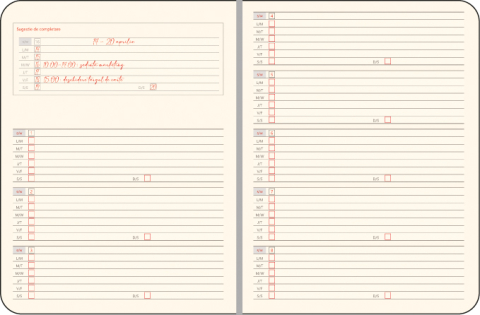 Sugestie de completare:
14 - 20 aprilie
L/M
M/T
M/W 10:00-14:00: sedinta marketing
J/T
V/F 15:00: deschidere targul de carte
S/S D/S 20
S/W 1
L/M
M/T
M/W
J/T
V/F
S/S D/S
S/W 2
L/M
M/T
M/W
J/T
V/F
S/S D/S
S/W 3
L/M
M/T
M/W
J/T
V/F
S/S D/S
S/W 4
L/M
M/T
M/W
J/T
V/F
S/S D/S
S/W 5
L/M
M/T
M/W
J/T
V/F
S/S D/S
S/W 6
L/M
M/T
M/W
J/T
V/F
S/S D/S
S/W 7
L/M
M/T
M/W
J/T
V/F
S/S D/S
S/W 8
L/M
M/T
M/W
J/T
V/F
S/S D/S